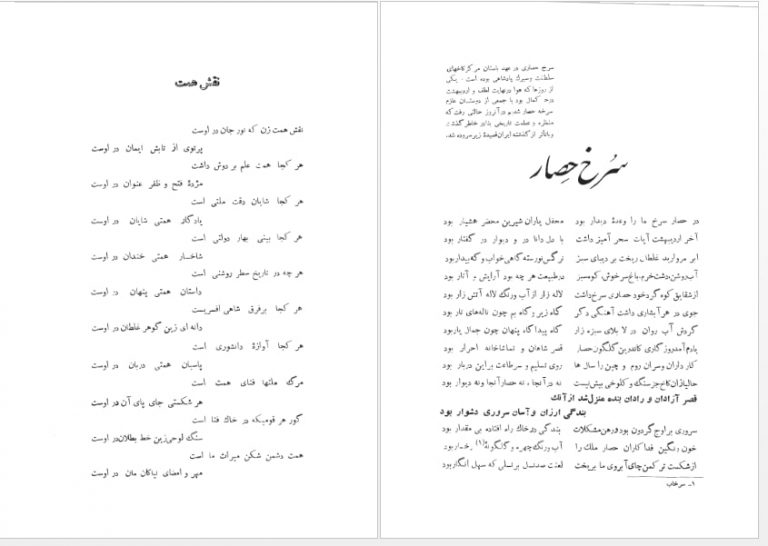 سرخ حصاری در عهد باستان مرکز کاخهای
سلطنت وسیرک پادشاهی بوده است . یکی
از روزها که هوا در نهایت لطف و اردیبهشت
در حد کمال بود با جمعی از دوستان عازم
سرخه حصار شدیم در آنروز حالتی رفت که
منظره و عظمت تاریخی بنابر خاطر گذشت ،
وبا تأثر از گذشته ایران قصیدهٔ زیر سروده شد.
سرخ حصار
در حصار سرخ ما را وعدهٔ دیدار بود
محفل یاران شیرین محضر هشیار بود
آخر اردیبهشت آیات سحر آمیز داشت
با دل دانا در و دیوار در گفتار بود
ابر مروارید غلطان ریخت بر دیبای سبز
نرگس نورسته گاهی خواب و گه بیدار بود
آب روشن، دشت خرم، باغ سرخوش، کوه سبز
در طبیعت هر چه بود آرایش و آثار بود
از شقایق کوه گرد خود حصاری سرخ داشت
لاله زار از آب ورنگ لاله آتش زار بود
جوی در هر آبشاری داشت آهنگی دگر
گاه زیر و گاه بم چون ناله‌های تار بود
گردش آب روان در لا بلای سبزه زار
گاه پیدا گاه پنهان چون جمال یار بود
یادم آمد روزگاری کاندرین گلگون حصار
قصر شاهان و تماشاخانه احرار بود
کار داران وسران روم و چین را سال ها
روی تسلیم و سر طاعت بر این دربار بود
حالیا زان کاخ جز سنگ و کلوخی بیش نیست
نه در آنجا ، نه حصار آنجا ونه دیوار بود
قصر آزادان و رادان بنده منزل شد از آنک
بندگی ارزان و آسان سروری دشوار بود
سروری بر اوج گردون بود و رهن مشکلات
بندگی در خاک راه افتاده بی مقدار بود
خون رنگین فداکاران حصار ملك را
آب ورنگ چهره و گلگونهٔ (۱) رخسار بود
از شکست تر کمن چای آبروی ما بریخت
لعنت صد نسل بر نسلی که سهل انگار بود
۱ـ سرخاب
نقش همت
نقش همت زن که نور جان در اوست
پرتوی از تابش ایمان در اوست
هر کجا همت علم بر دوش داشت
مژدهٔ فتح و ظفر عنوان در اوست
هر کجا شایان دقت ملتی است
یادگار همتی شایان در اوست
هر کجا بینی بهار دولتی است
شاخسار همتی خندان در اوست
هر چه در تاریخ سطر روشنی است
داستان همتی پنهان در اوست
هر کجا برفرق شاهی افسریست
دانه ای زین گوهر غلطان در اوست
هر کجا آوازهٔ دانشوری است
پاسبان همتی دربان در اوست
مرگ ملتها فنای همت است
هر شکستی جای پای آن در اوست
گور هر قومیکه در خاك فنا است
سنگ لوحی زین خط بطلان در اوست
همت دشمن شکن میراث ما است
مهر و امضای نیاکان مان در اوست